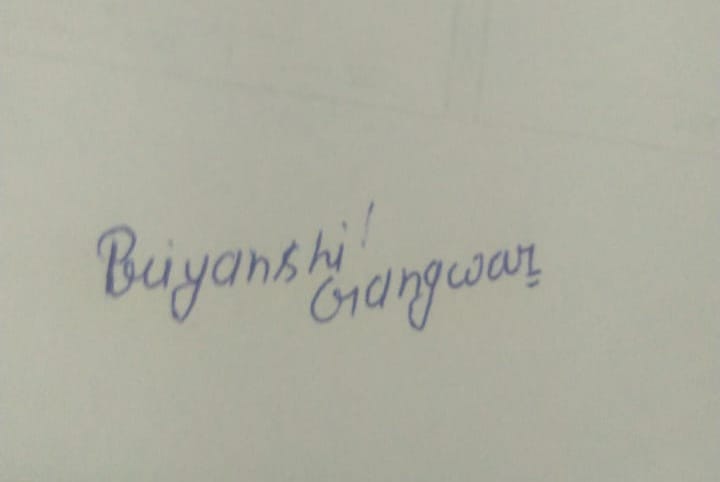 Priyanshi
Gangwar